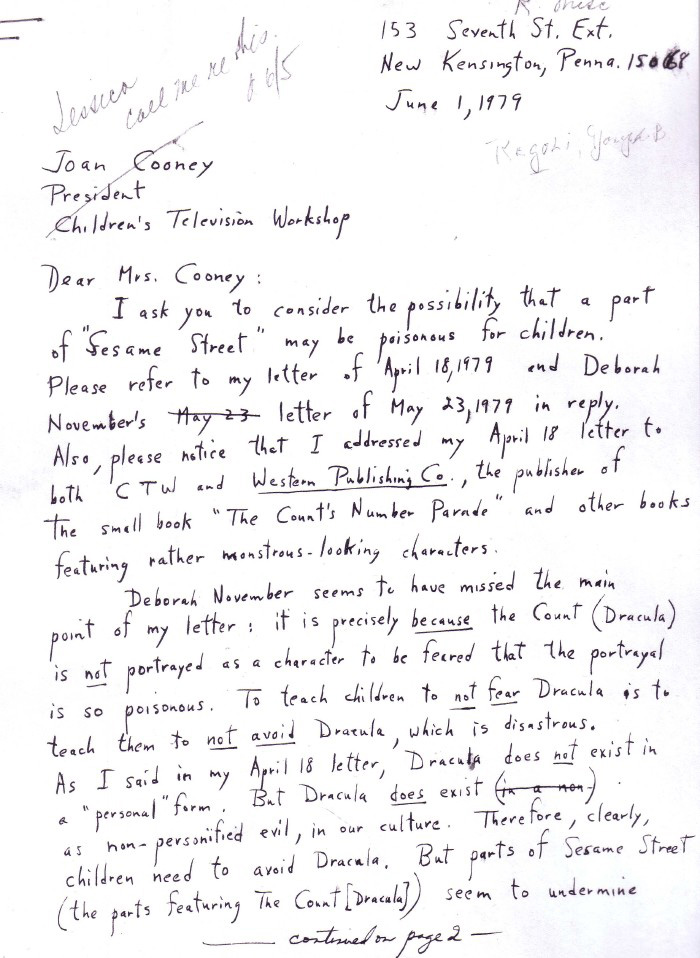 153 Seventh St. Ext.
New Kensington, Penna. 15068
June 1, 1979
Jessica
call me re this.
6/5
Joan Cooney
President
Children's Television Workshop
Dear Mrs. Cooney:
I ask you to consider the possibility that a part
of "Sesame Street" may be poisonous for children.
Please refer to my letter of April 18, 1979 and Deborah
November's May 23 letter of May 23, 1979 in reply.
Also, please notice that I addressed my April 18 letter to
both CTW and Western Publishing Co., the publisher of
the small book "The Count's Number Parade" and other books
featuring rather monstrous-looking characters.
Deborah November seems to have missed the main
point of my letter: it is precisely because the Count (Dracula)
is not portrayed as a character to be feared that the portrayal
is so poisonous. To teach children to not fear Dracula is to
teach them to not avoid Dracula, which is disastrous.
As I said in my April 18 letter, Dracula does not exist in
a "personal" form. But Dracula does exist (in a non-)
as non-personified evil, in our culture. Therefore, clearly,
children need to avoid Dracula. But parts of Sesame Street
(the parts featuring The Count [Dracula]) seem to undermine
— continued on page 2 —